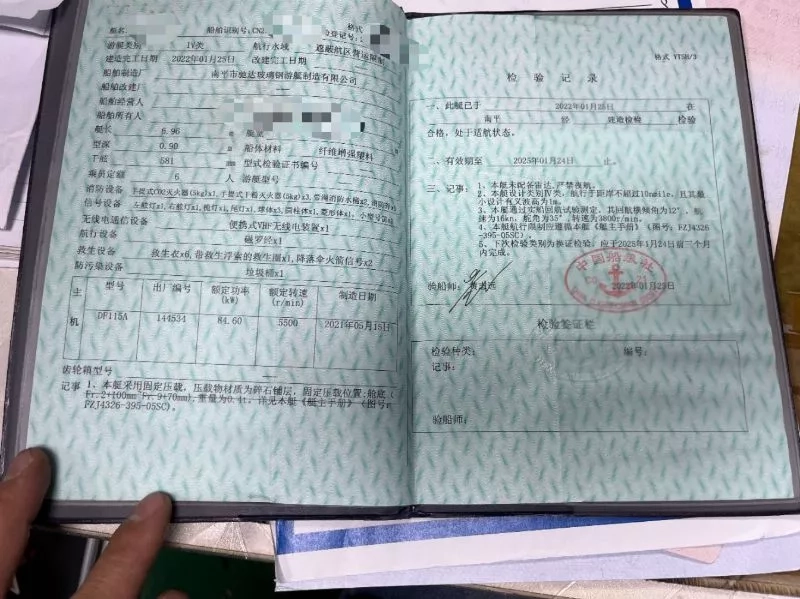 船名
船舶识别号:CN2
格式
登记号:
游艇类别 IV类 航行水域 遮蔽航区营运限制
建造完工日期 2022年01月25日 改建完工日期
船舶制造厂 南平市驰达玻璃钢游艇制造有限公司
船舶改建厂
船舶经营人
船舶所有人
艇长 6.96 m 艇宽 m
型深 0.90 m 船体材料 纤维增强塑料
干舷 581 mm 型式检验证书编号
乘员定额 6 人 游艇型号
消防设备 手提式CO2灭火器(5kg)x1,手提式干粉灭火器(5kg)x3,带绳消防水桶x2,
信号设备 左舷灯x1,右舷灯x1,桅灯x1,尾灯x1,球体x3,圆柱体x1,菱形体x1,
无线电通信设备 便携式VHF无线电装置x1
航行设备 磁罗经x1
救生设备 救生衣x6,带救生浮索的救生圈x1,降落伞火箭信号x2
防污染设备 垃圾桶x1
主机 型号 出厂编号 额定功率(kW) 额定转速(r/min) 制造日期
DF115A 144534 84.60 5500 2021年05月15日
齿轮箱型号
记事 1、本艇采用固定压载,压载物材质为碎石铺层,固定压载位置:舱底(
Fr.2+100mm~Fr.9+70mm),重量为0.4t。详见本艇《艇主手册》(图号:
FZJ4326-395-05SC)。
格式 YTSH/3
检验记录
一、此艇已于 2022年01月25日 在
南平 经 建造检验 检验
合格,处于适航状态。
二、有效期至 2025年01月24日 止。
三、记事: 1、本艇未配备雷达,严禁夜航。
2、本艇设计类别Ⅳ类,航行于距岸不超过10nmile,且其最
小设计有义波高为1m
3、本艇通过实船回航试验测定,其回航横倾角为12°,航
速为16kn,舵角为35°,转速为3800r/min。
4、本艇航行限制应遵循本艇《艇主手册》(图号:FZJ4326
-395-05SC)。
5、下次检验类别为换证检验,应于2025年1月24日前三个月
内完成。
验船师:
中国船级社
2022年01月25日
检验签证栏
检验种类: 编号:
记事:
验船师: